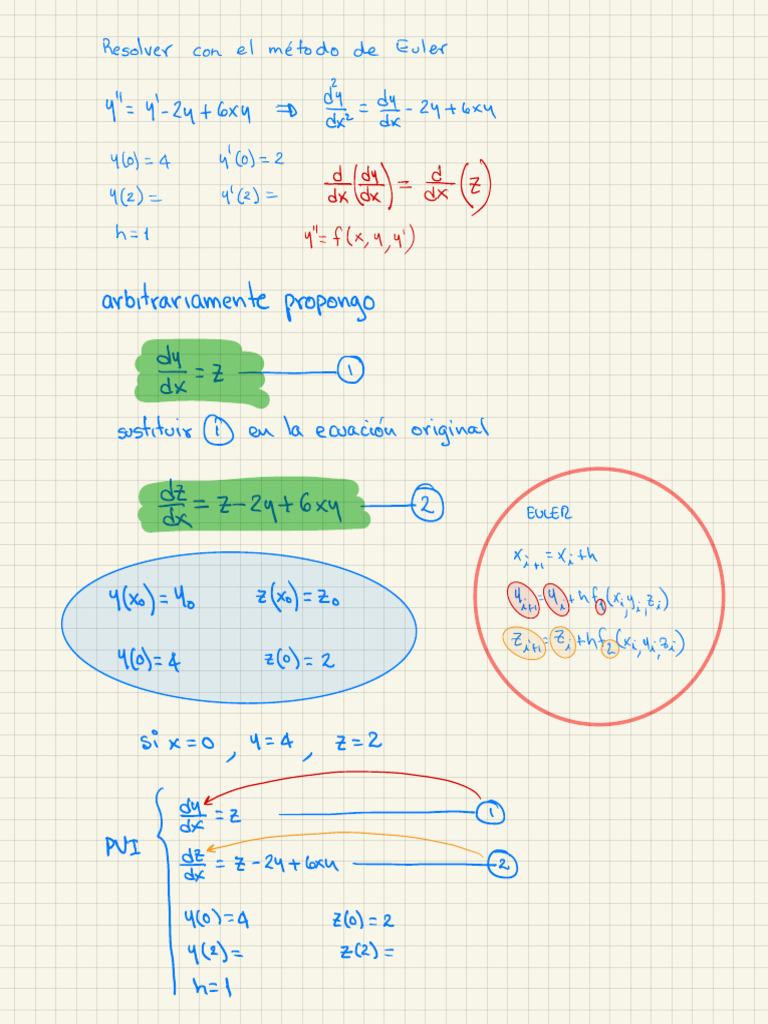 Resolver con el método de Euler
y'' = y' - 2y + 6xy ⇒ d²y/dx² = dy/dx - 2y + 6xy
y(0) = 4 y'(0) = 2
y(2) = y'(2) =
h = 1
d/dx (dy/dx) = d/dx (z)
y'' = f(x, y, y')
arbitrariamente propongo
dy/dx = z ①
sustituir ① en la ecuación original
dz/dx = z - 2y + 6xy ②
y(x₀) = y₀ z(x₀) = z₀
y(0) = 4 z(0) = 2
EULER
xᵢ₊₁ = xᵢ + h
yᵢ₊₁ = yᵢ + hf₁(xᵢ, yᵢ, zᵢ)
zᵢ₊₁ = zᵢ + hf₂(xᵢ, yᵢ, zᵢ)
si x = 0 , y = 4 , z = 2
PVI
dy/dx = z ①
dz/dx = z - 2y + 6xy ②
y(0) = 4 z(0) = 2
y(2) = z(2) =
h = 1